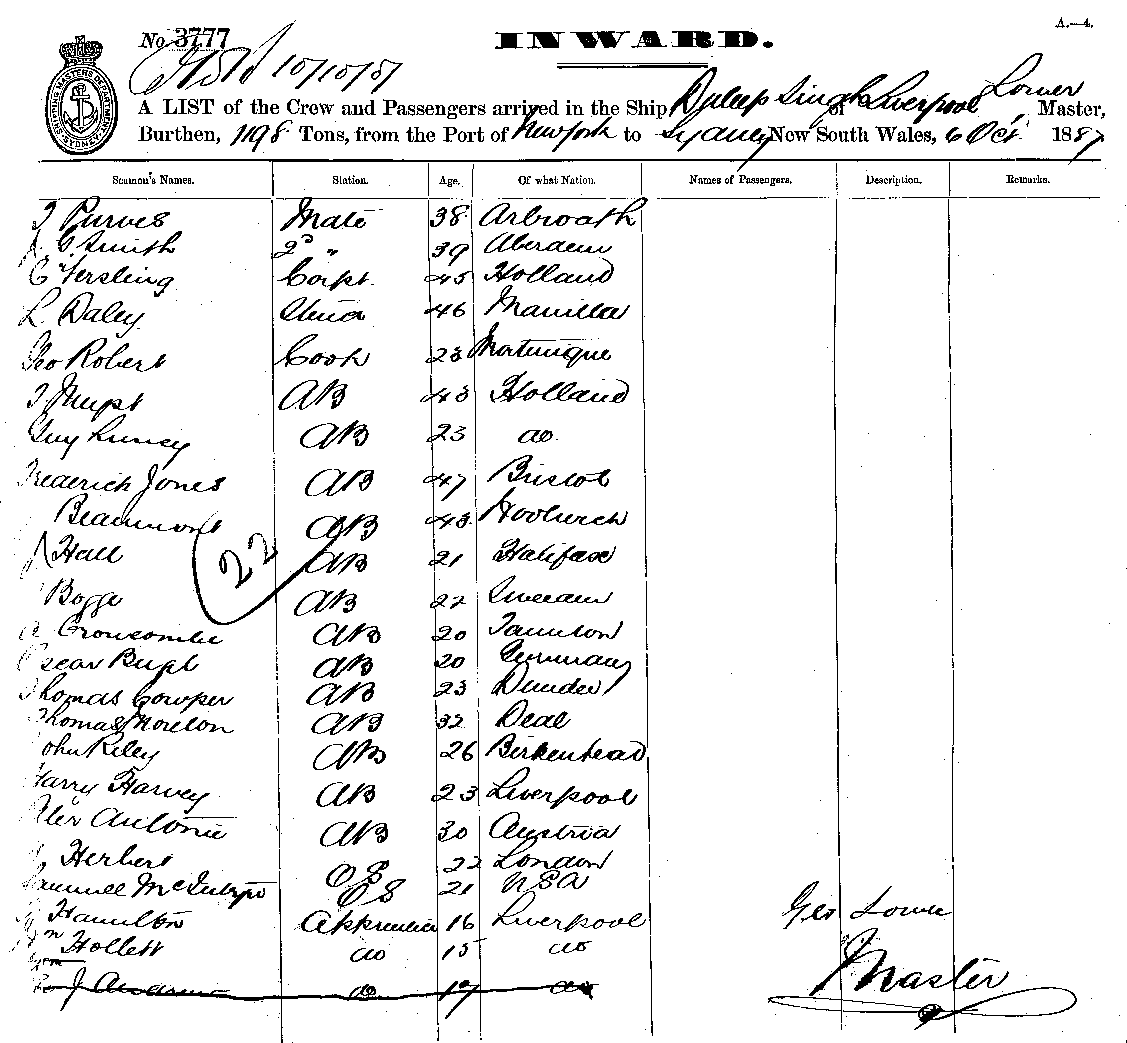 A.—4.
No. 3777
INWARD.
10/10/87
SHIPPING MASTERS DEPARTMENT SYDNEY
A LIST of the Crew and Passengers arrived in the Ship Duleep Singh of Liverpool Lowe Master,
Burthen, 1198 Tons, from the Port of New York to Sydney New South Wales, 6 Oct 1887
Seaman's Names. Station. Age. Of what Nation. Names of Passengers. Description. Remarks.
Purves Mate 38 Arbroath
G Smith 2D " 39 Aberdeen
C Versling Carpt 45 Holland
L. Daley 46 Manilla
Geo Robert Cook 23 Martinique
AB 43 Holland
Guy AB 23 do
Frederick Jones AB 47 Bristol
Beaumont AB 43 Woolwich
J Hall AB 21 Halifax
22
Bogge AB 22 Sweden
Crowcombe AB 20 Taunton
Oscar AB 20 Germany
Thomas Cowper AB 23 Dundee
Thomas Moreton AB 32 Deal
John Riley AB 26 Birkenhead
Harry Harvey AB 23 Liverpool
Peter Antonie AB 30 Austria
Herbert OS 22 London
Samuel McIntyre OS 21 USA
Hamilton Apprentice 16 Liverpool
Geo Lowe
Wm Hollett do 15 do
Master
J do 17 do